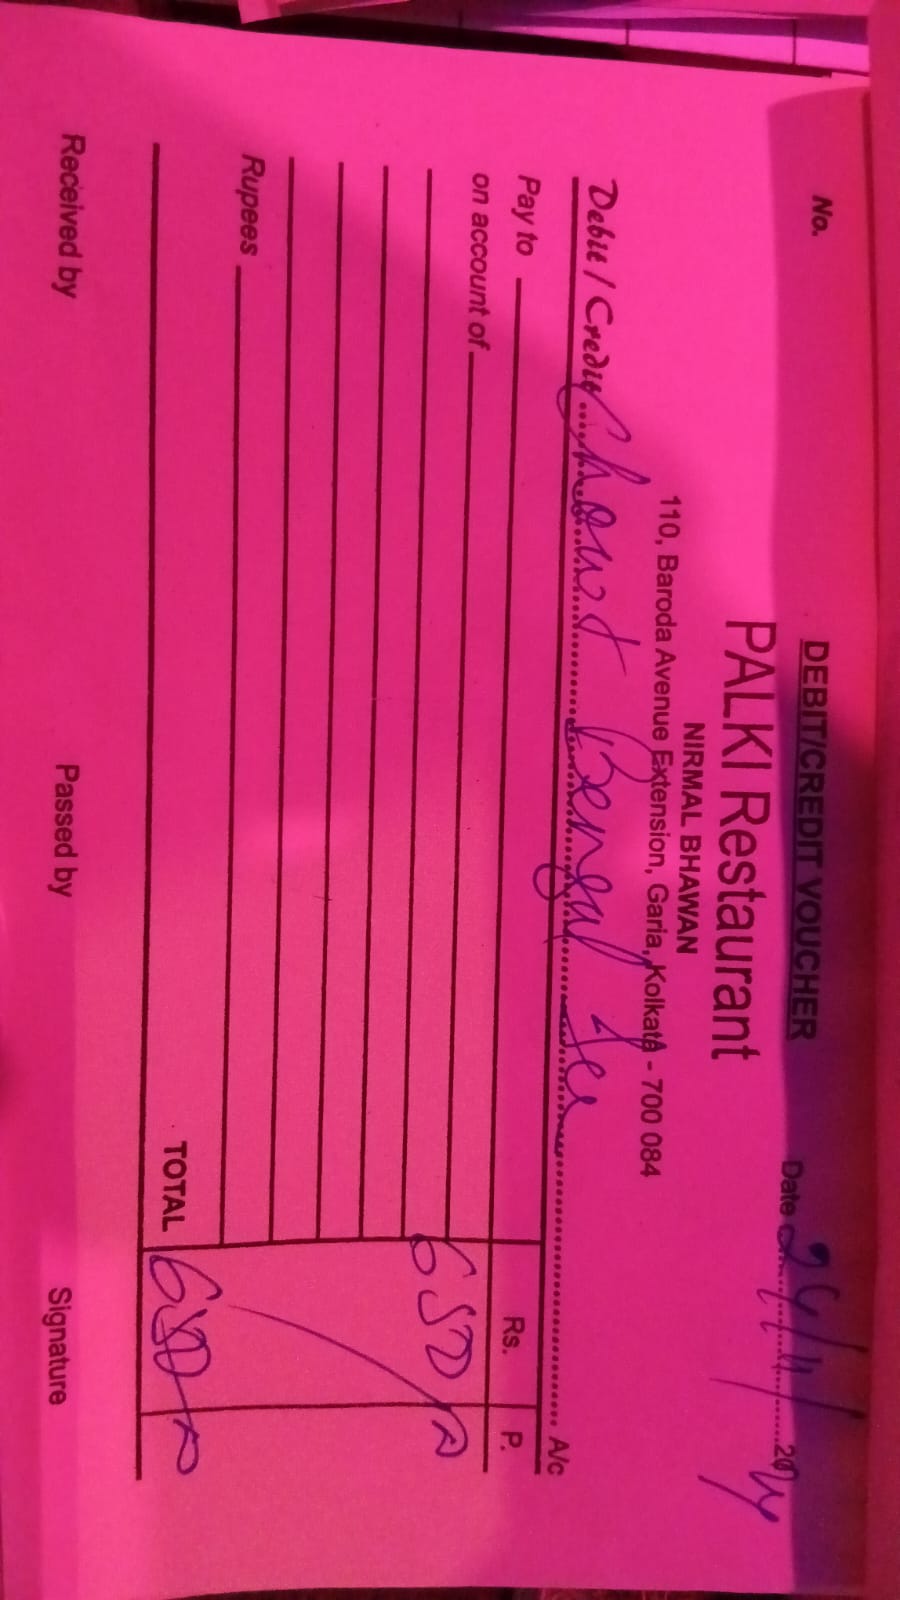 DEBIT/CREDIT VOUCHER
No. Date 24/11/2024
PALKI Restaurant
NIRMAL BHAWAN
110, Baroda Avenue Extension, Garia, Kolkata - 700 084
Debit / Credit Bengal A/c
Pay to Rs. P.
on account of
650/-
Rupees
TOTAL 650/-
Received by Passed by Signature